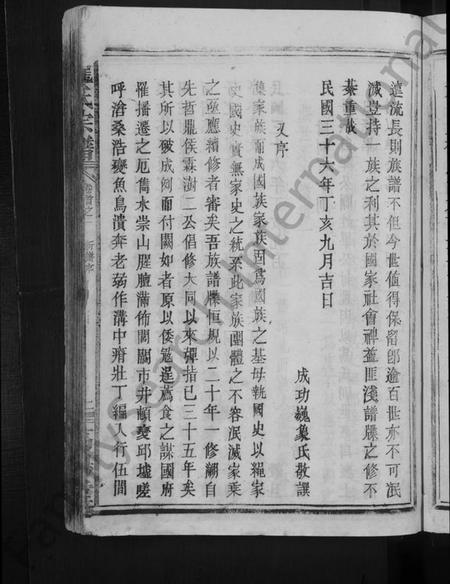 遠流長則族譜不但今世值得保留卽逾百世亦不可泯
減豈持一族之利其於國家社會裨益匪淺譜牒之修不
綦重歟
民國三十六年丁亥九月吉日
成功巍象氏敬譔
又序
家族而成國族家族固爲國族之基母執國史以繩家
史國史實無家史之統系此家族團體之不容泯滅家乗
之亟應續修者審矣吾族譜牒恒規以二十年一修溯自
先哲龍侯霖澍二公倡修大同以來彈指已三十五年矣
其所以破成例而付闕如者原以倭寇逞薦食之謀國府
罹播遷之厄雋水崇山腥膻滿佈闤闠市井頓變邱墟嗟
呼滄桑浩變魚鳥潰奔老弱作溝中瘠壯丁編入行伍間
氏宗譜
卷首之一
新序
FamilySearch International